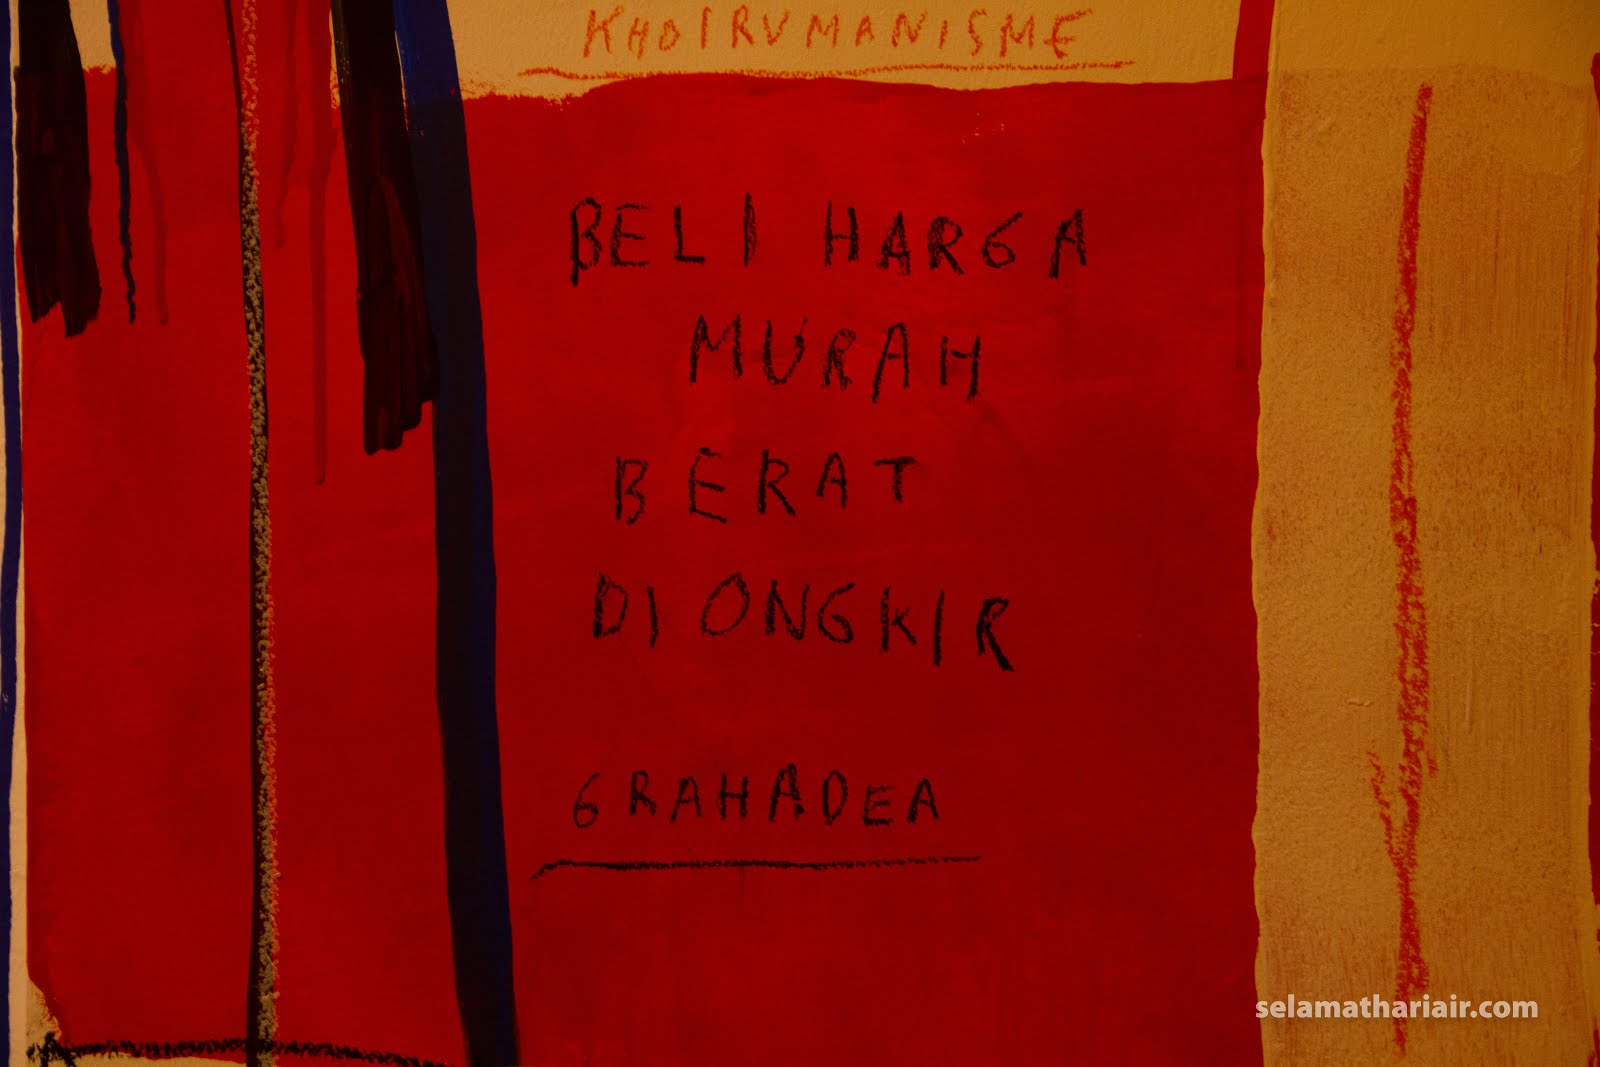 KHOIRUMANISME
BELI HARGA
MURAH
BERAT
DI ONGKIR
GRAHADEA
selamathariair.com